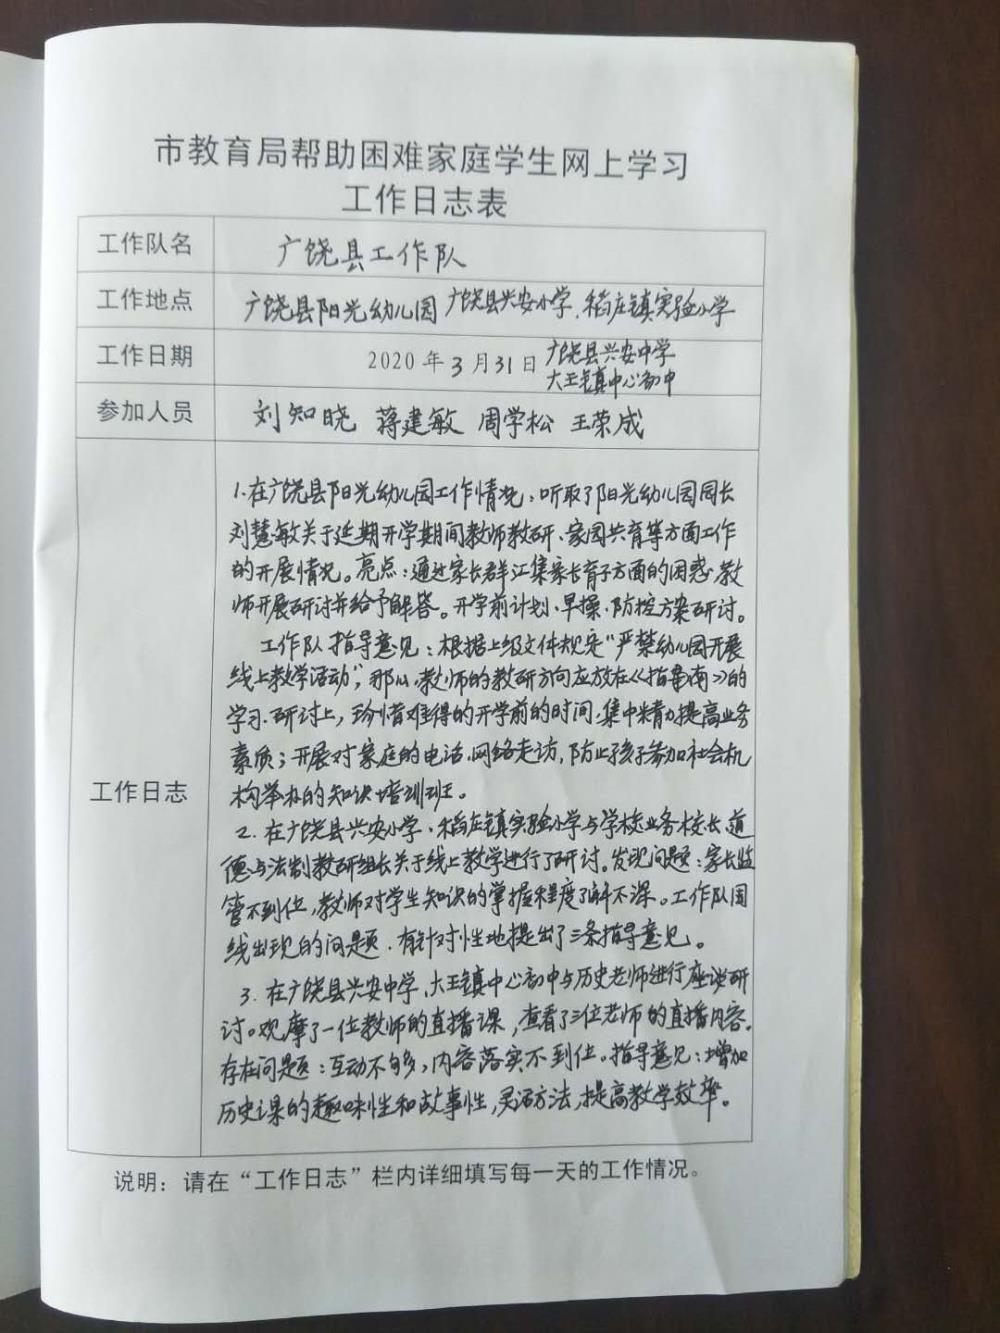 市教育局帮助困难家庭学生网上学习
工作日志表
工作队名
广饶县工作队
工作地点
广饶县阳光幼儿园 广饶县兴安小学、稻庄镇实验小学
工作日期
2020年3月31日 广饶县兴安中学
大王镇中心初中
参加人员
刘知晓 蒋建敏 周学松 王荣成
工作日志
1.在广饶县阳光幼儿园工作情况:听取了阳光幼儿园园长
刘慧敏关于延期开学期间教师教研、家园共育等方面工作
的开展情况。亮点:通过家长群汇集家长育子方面的困惑,教
师开展研讨并给予解答。开学前计划、早操、防控方案研讨。
工作队指导意见:根据上级文件规定“严禁幼儿园开展
线上教学活动”,那么,教师的教研方向应放在《指南》的
学习、研讨上,珍惜难得的开学前的时间,集中精力提高业务
素质;开展对家庭的电话、网络走访,防止孩子参加社会机
构举办的知识培训班。
2.在广饶县兴安小学、稻庄镇实验小学与学校业务校长、道
德与法制教研组长关于线上教学进行了研讨。发现问题:家长监
管不到位,教师对学生知识的掌握程度了解不深。工作队围
线出现的问题,有针对性地提出了三条指导意见。
3.在广饶县兴安中学、大王镇中心初中与历史老师进行座谈研
讨。观摩了一位教师的直播课,查看了三位老师的直播内容。
存在问题:互动不够多,内容落实不到位。指导意见:增加
历史课的趣味性和故事性,灵活方法,提高教学效率。
说明:请在“工作日志”栏内详细填写每一天的工作情况。